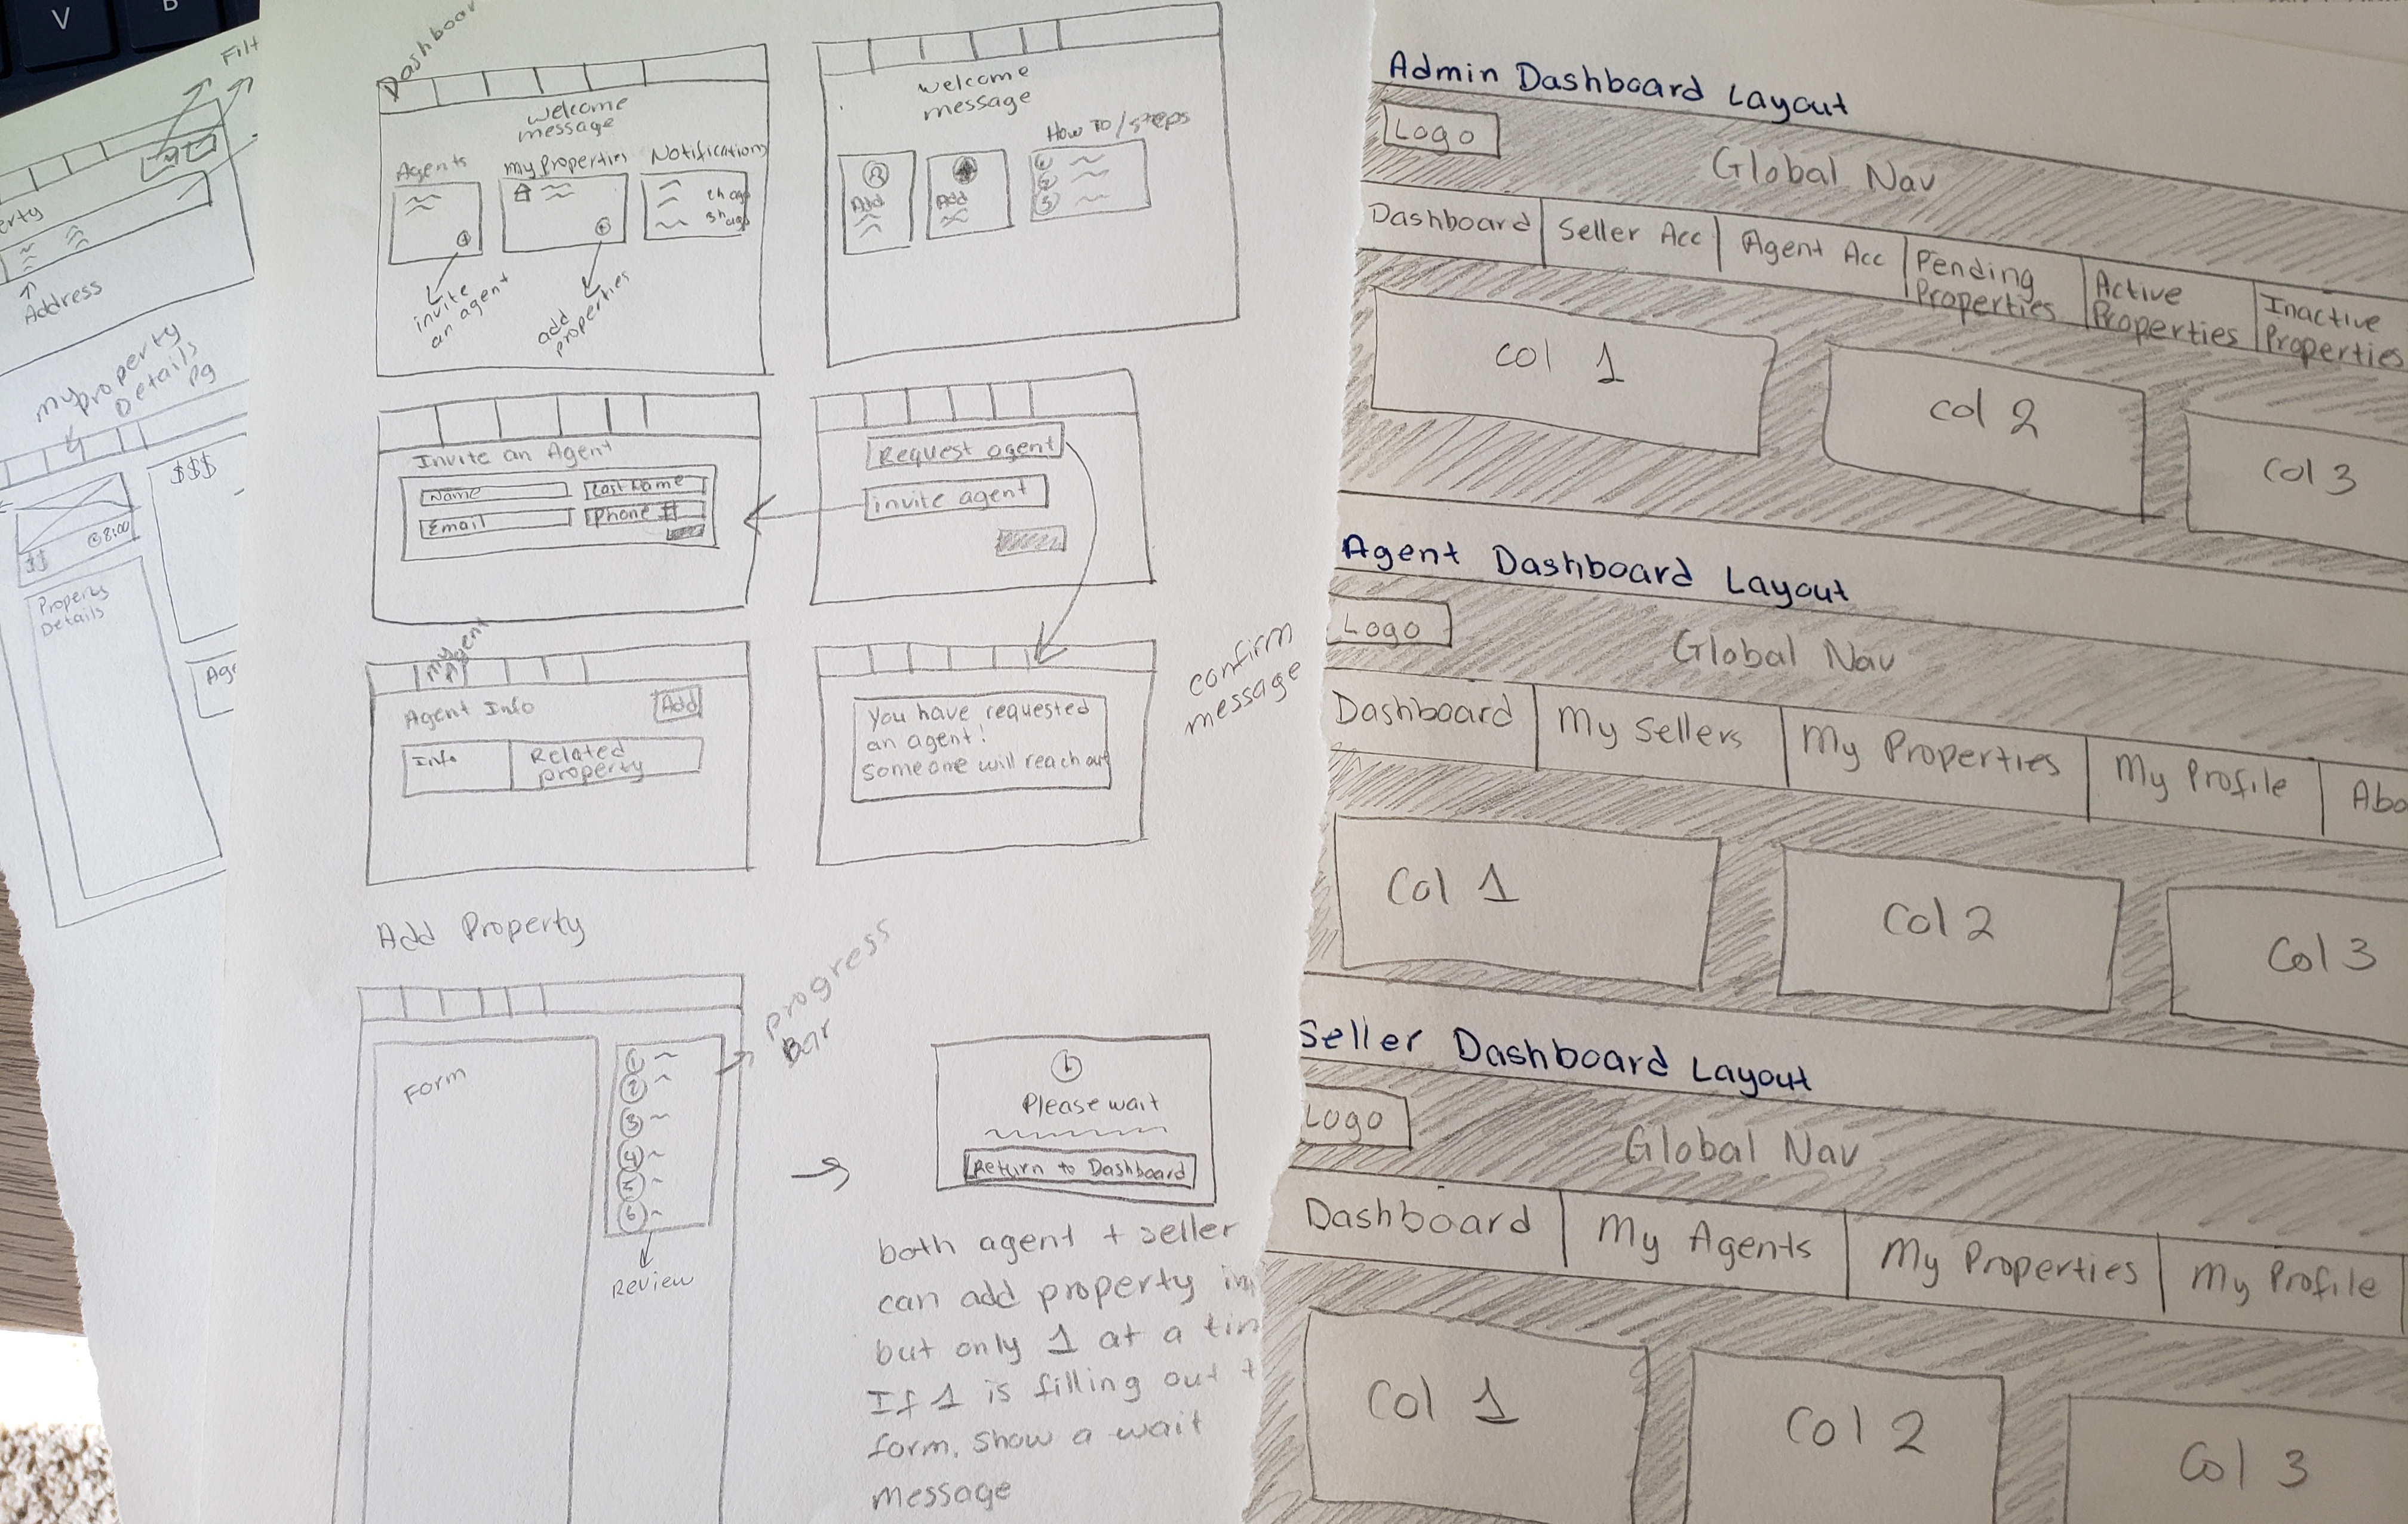 V
B
Filt
erty
Address
My property
Details
Pg
$$$
8:00
$$
Property
Details
Age
Dashboar
Welcome
message
Agents
My Properties
Notifications
2h ago
3h ago
invite
an agent
add
properties
Welcome
message
How To/steps
Add
Add
1
2
3
Invite an Agent
Name
Last Name
Email
Phone #
Request agent
invite agent
My
Agent
Agent Info
Add
Info
Related
property
You have requested
an agent!
Someone will reach out
confirm
message
Add Property
Form
1
2
3
4
5
6
Progress
Bar
Review
Please wait
Return to Dashboard
both agent + seller
can add property in
but only 1 at a tim
If 1 is filling out t
form, show a wait
message
Admin Dashboard Layout
Logo
Global Nav
Dashboard
Seller Acc
Agent Acc
Pending
Properties
Active
Properties
Inactive
Properties
Col 1
Col 2
Col 3
Agent Dashboard Layout
Logo
Global Nav
Dashboard
My Sellers
My Properties
My Profile
Abo
Col 1
Col 2
Col 3
Seller Dashboard Layout
Logo
Global Nav
Dashboard
My Agents
My Properties
My Profile
Col 1
Col 2
Col 3